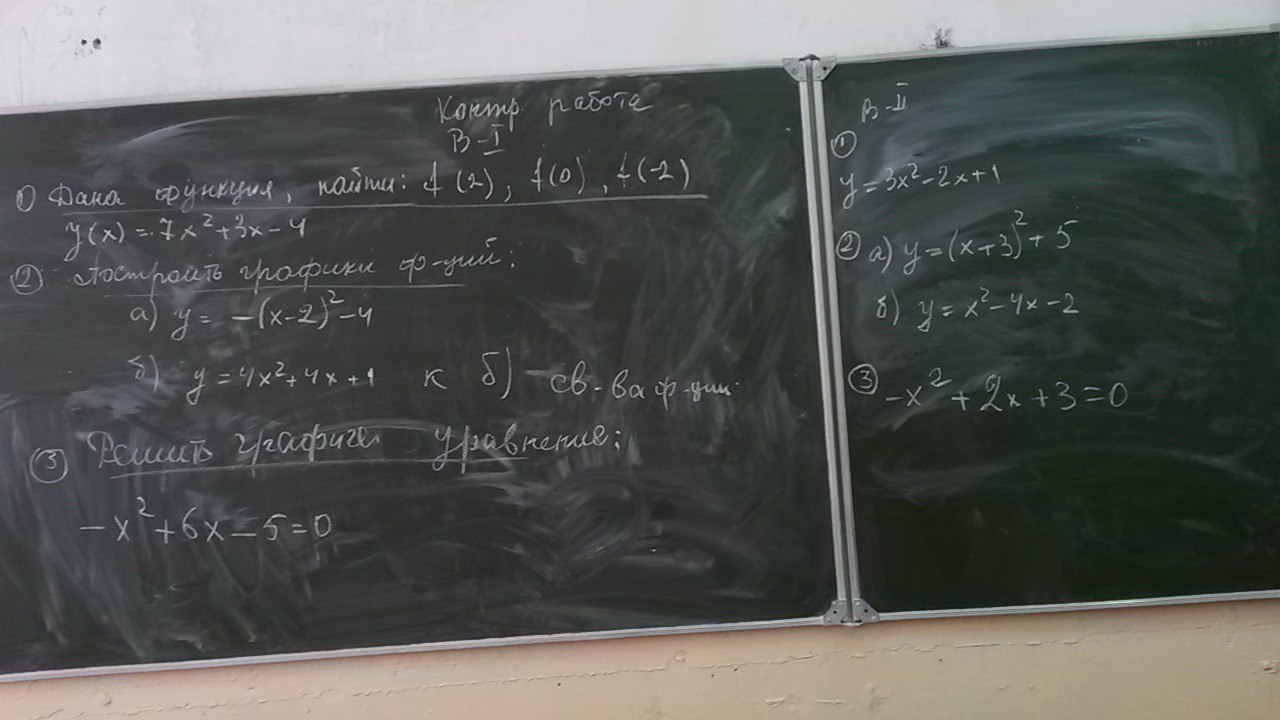 Контр. работа
В-I
① Дана функция, найти: f(2), f(0), f(-2)
y(x) = 7x²+3x-4
② Построить графики ф-ций:
а) y = -(x-2)²-4
б) y = 4x²+4x+1 к б) св-ва ф-ции
③ Решить графич. уравнение:
-x²+6x-5=0
В-II
①
y=3x²-2x+1
② а) y=(x+3)²+5
б) y=x²-4x-2
③ -x²+2x+3=0